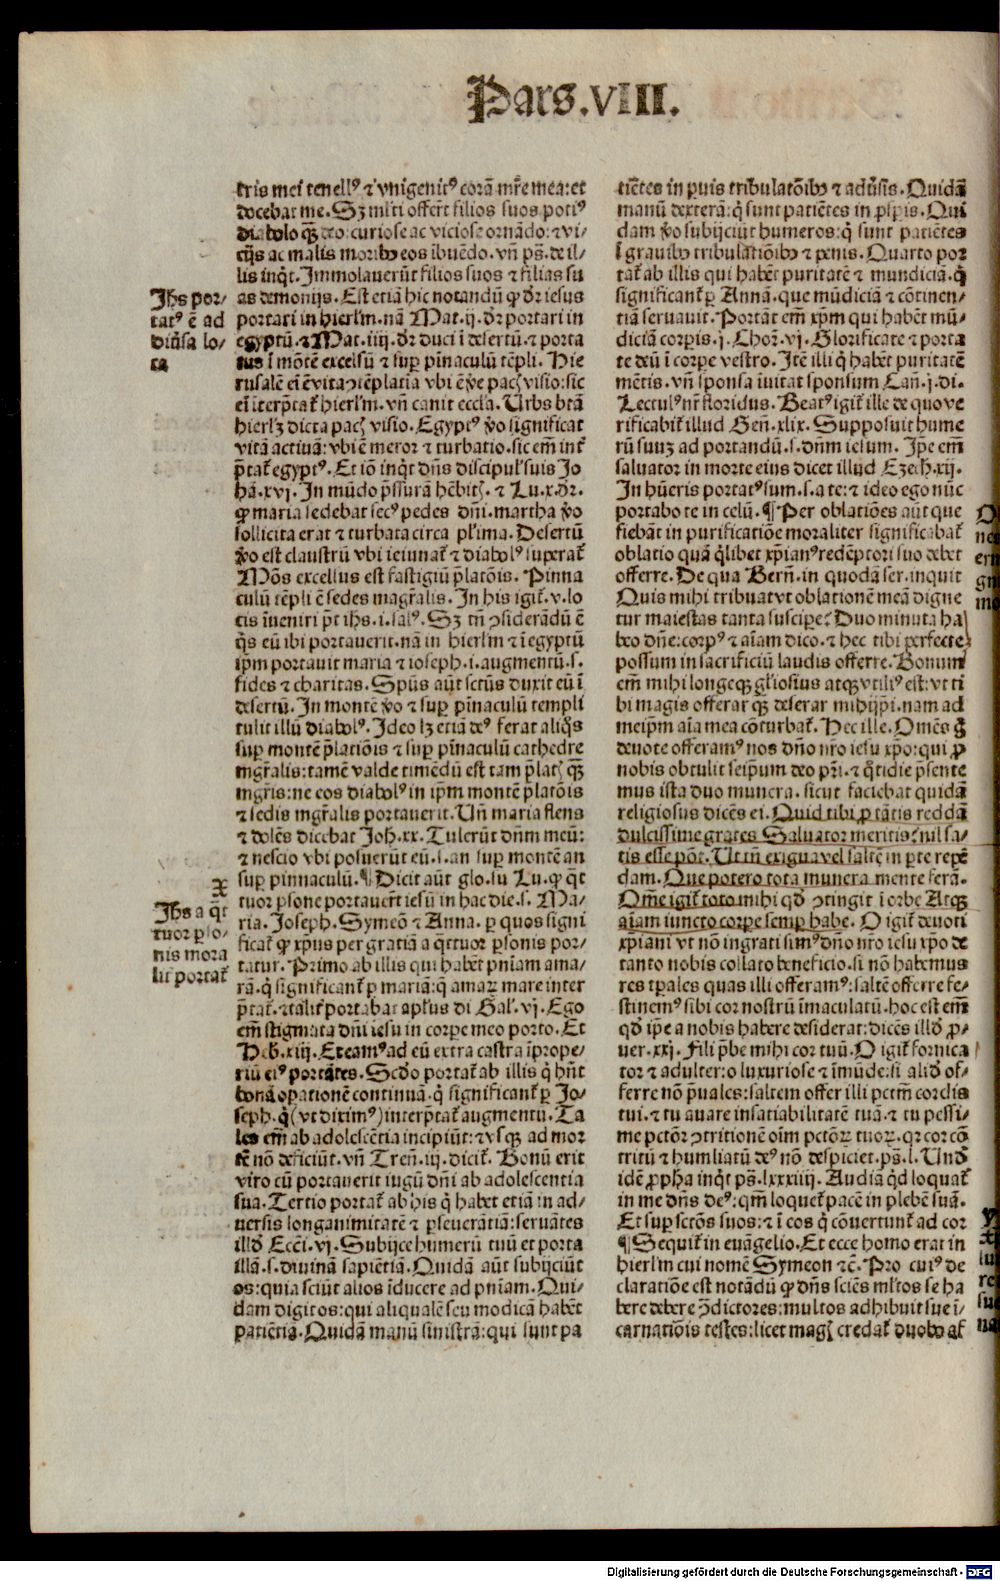 Pars.VIII.
tris mei tenellꝰ ⁊ vnigenitꝰ corā mr̄e mea: et
docebat me. Sꝫ ml̄ti offerūt filios suos potiꝰ
diabolo qꝫ deo: curiose ac viciose ornādo: ⁊ vi-
tijs ac malis moribꝰ eos ībuēdo. vn̄ ps̄. de il-
lis inqͥt. Immolauerūt filios suos ⁊ filias su
as demonijs. Est etiā hic notandū ꝙ dr̄ iesus
portari in hierl̄m. nā Mat. ij. dr̄ portari in
egyptū. ⁊ Mat. iiij. dr̄ duci ī desertū. ⁊ porta
tus ī mōtē excelsū ⁊ sup̄ pinaculū tēpli. Hie
rusalē em̄ ē vita ꝯtēplatīa vbi ē ṽe pacꝭ visio: sic
em̄ īterp̄tat̄ hierl̄m. vn̄ canit eccl̄a. Urbs btā
hierl̄ꝫ dicta pacꝭ visio. Egyptꝰ v̄o significat
vitā actiuā: vbi ē meror ⁊ turbatio. sic em̄ int̄
p̄tat̄ egyptꝰ. Et iō inqͥt dn̄s discipul̄ suis Jo
hā. xvj. In mūdo p̄ssurā hēbitꝭ. ⁊ Lu. x. dr̄.
ꝙ maria sedebat secꝰ pedes dn̄i. martha v̄o
sollicita erat ⁊ turbata circa pl̄ima. Desertū
v̄o est claustrū vbi ieiunat̄ ⁊ diabolꝰ superat̄
Mōs excelsus est fastigiū p̄latōis. Pinna
culū tēpli ē sedes magr̄alis. In his igit̄. v. lo
cis īueniri p̄t ih̄s. i. salꝰ. Sꝫ tn̄ ꝯsiderādū ē
qͥs eū ibi portauerit. nā in hierl̄m ⁊ ī egyptū
ip̄m portauit maria ⁊ ioseph. i. augmentū. s.
fides ⁊ charitas. Spūs aūt sctūs duxit eū ī
desertū. In montē v̄o ⁊ sup̄ pīnaculū templi
tulit illū diabolꝰ. Ideo lꝫ etiā deꝰ ferat aliqͦs
sup̄ montē p̄latiōis ⁊ sup̄ pīnaculū cathedre
mgr̄alis: tamē valde timēdū est tam p̄latꝭ qꝫ
mgr̄is: ne eos diabolꝰ in ip̄m montē p̄latōis
⁊ sedis mgr̄alis portauerit. Un̄ maria flens
⁊ dolēs dicebat Joh. xx. Tulerūt dn̄m meū:
⁊ nescio vbi posuerūt eū. s. an sup̄ montē an
sup̄ pinnaculū. ¶ Dicit aūt glo. su Lu. ꝙ qͣt
tuor ꝑsone portauerūt iesū in hac die. s. Ma-
ria. Joseph. Symeō ⁊ Anna. ꝑ quos signi
ficat̄ ꝙ xp̄us per gratiā a qͣttuor ꝑsonis por-
tatur. Primo ab illis qui habēt pn̄iam ama-
rā. qͥ significant̄ ꝑ mariā: qͥ amaꝝ mare inter
p̄tat̄. ⁊ talit̄ portabat apl̄us di Gal̄. vj. Ego
em̄ stigmata dn̄i iesu in corꝑe meo porto. Et
Heb̄. xiij. Exeamꝰ ad eū extra castra īprope-
riū eiꝰ portātes. Scd̄o portat̄ ab illis qͥ hn̄t
bonā oꝑationē continuā. qͥ significant̄ ꝑ Jo-
seph. qͥ (vt diximꝰ) interp̄tat̄ augmentū. Ta
les em̄ ab adolescētia incipiūt: ⁊ vsqꝫ ad mor
tē nō deficiūt. vn̄ Tren̄. iij. dicit̄. Bonū erit
viro cū portauerit iugū dn̄i ab adolescentia
sua. Tertio portat̄ ab his qͥ habēt etiā in ad-
uersis longanimitatē ⁊ ꝑseuerātiā: seruātes
illd̄ Ecc̄i. vj. Subijce humerū tuū et porta
illā. s. diuinā sapiētiā. Quidā aūt subijciūt
os: quia sciūt alios īducere ad pn̄iam. Qui-
dam digitos: qui aliqualē seu modicā habēt
patiētiā. Quidā manū sinistrā: qui sunt pa
Jhs por-
tatꝰ ē ad
diūsa lo-
ca
X
Jhs a qͣt
tuor ꝑso-
nis mora
lit̄ portat̄
tiētes in ꝑuis tribulatōibꝰ ⁊ adūsis. Quidā
manū dexterā: qͥ sunt patiētes in ꝓsꝑis. Qui
dam v̄o subijciūt humeros: qͥ sunt patiētes
ī grauibꝰ tribulatiōibꝰ ⁊ penis. Quarto por
tat̄ ab illis qui habēt puritatē ⁊ mundiciā. qͥ
significant̄ ꝑ Annā. que mūdiciā ⁊ cōtinen-
tiā seruauit. Portāt em̄ xp̄m qui habēt mū-
diciā corꝑis. j. Chor̄. vj. Glorificate ⁊ porta
te deū ī corꝑe vestro. Itē illi qͥ habēt puritatē
mētis. vn̄ sponsa īuitat sponsum Can̄. j. di.
Lectulꝰ nr̄ floridus. Beatꝰ igit̄ ille de quo ve
rificabit̄ illud Gen̄. xlix. Supposuit hume
rū suuꝫ ad portandū. s. dn̄m iesum. Ip̄e em̄
saluator in morte eius dicet illud Ezech. xij.
In hūeris portatꝰ sum. s. a te: ⁊ ideo ego nūc
portabo te in celū. ¶ Per oblatiōes aūt que
fiebāt in purificatiōe moraliter significabat̄
oblatio quā qͥlibet xp̄ianꝰ redēptori suo debet
offerre. De qua Bern̄. in quodā ser. inquit
Quis mihi tribuat vt oblationē meā digne
tur maiestas tanta suscipere? Duo minuta ha
beo dn̄e: corpꝰ ⁊ aīam dico. ⁊ hec tibi perfecte
possum in sacrificiū laudis offerre. Bonum
em̄ mihi longeqꝫ gl̄iosius atqꝫ vtiliꝰ est: vt ti
bi magis offerar qꝫ deserar mihijp̄i. nam ad
meip̄m aīa mea cōturbat̄. Hec ille. Omēs gͦ
deuote offeramꝰ nos dn̄o nr̄o iesu xp̄o: qui ꝓ
nobis obtulit seip̄um deo pr̄i. ⁊ qͦtidie p̄sente
mus ista duo munera. sicut faciebat quidā
religiosus dicēs ei. Quid tibi ꝓ tātis reddā
dulcissime grates Saluator meritis? nil sa-
tis esse pōt. Ut tn̄ exigua vel saltē in ꝑte repē
dam. Que potero tota munera mente ferā.
Om̄e igit̄ toto mihi qd̄ ꝯtingit ī orbe Atqꝫ
aīam iuncto corꝑe semꝑ habe. O igit̄ deuoti
xp̄iani vt nō ingrati simꝰ dn̄o nr̄o iesu xp̄o de
tanto nobis collato beneficio. si nō habemus
res tꝑales quas illi offeramꝰ: saltē offerre fe-
stinemꝰ sibi cor nostrū īmaculatū. hoc est em̄
qd̄ ip̄e a nobis habere desiderat: dicēs illd̄ ꝓ-
uer. xxj. Fili p̄be mihi cor tuū. O igit̄ fornica
tor ⁊ adulter: o luxuriose ⁊ īmūde: si aliд of-
ferre nō p̄uales: saltem offer illi pctm̄ cordis
tui. ⁊ tu auare insatiabilitatē tuā. ⁊ tu pessi-
me pctōr ꝯtritionē oīm pctōꝝ tuoꝝ. qꝛ cor cō
tritū ⁊ humliatū deꝰ nō despiciet. ps̄. l. Und̄
idē ꝓpha inqͥt ps̄. lxxxiiij. Audiā qd̄ loquat̄
in me dn̄s deꝰ: qm̄ loquet̄ pacē in plebē suā.
Et sup̄ sctōs suos: ⁊ ī eos qͥ cōuertunt̄ ad cor
¶ Sequit̄ in euāgelio. Et ecce homo erat in
hierl̄m cui nomē Symeon ⁊c̄. Pro cuiꝰ de
claratiōe est notādū ꝙ dn̄s sciēs ml̄tos se ha
bere debere ꝯ̄dictores: multos adhibuit sue ī-
carnatiōis testes: licet magꝭ credat̄ duobꝰ aſ
Digitalisierung gefördert durch die Deutsche Forschungsgemeinschaft - DFG